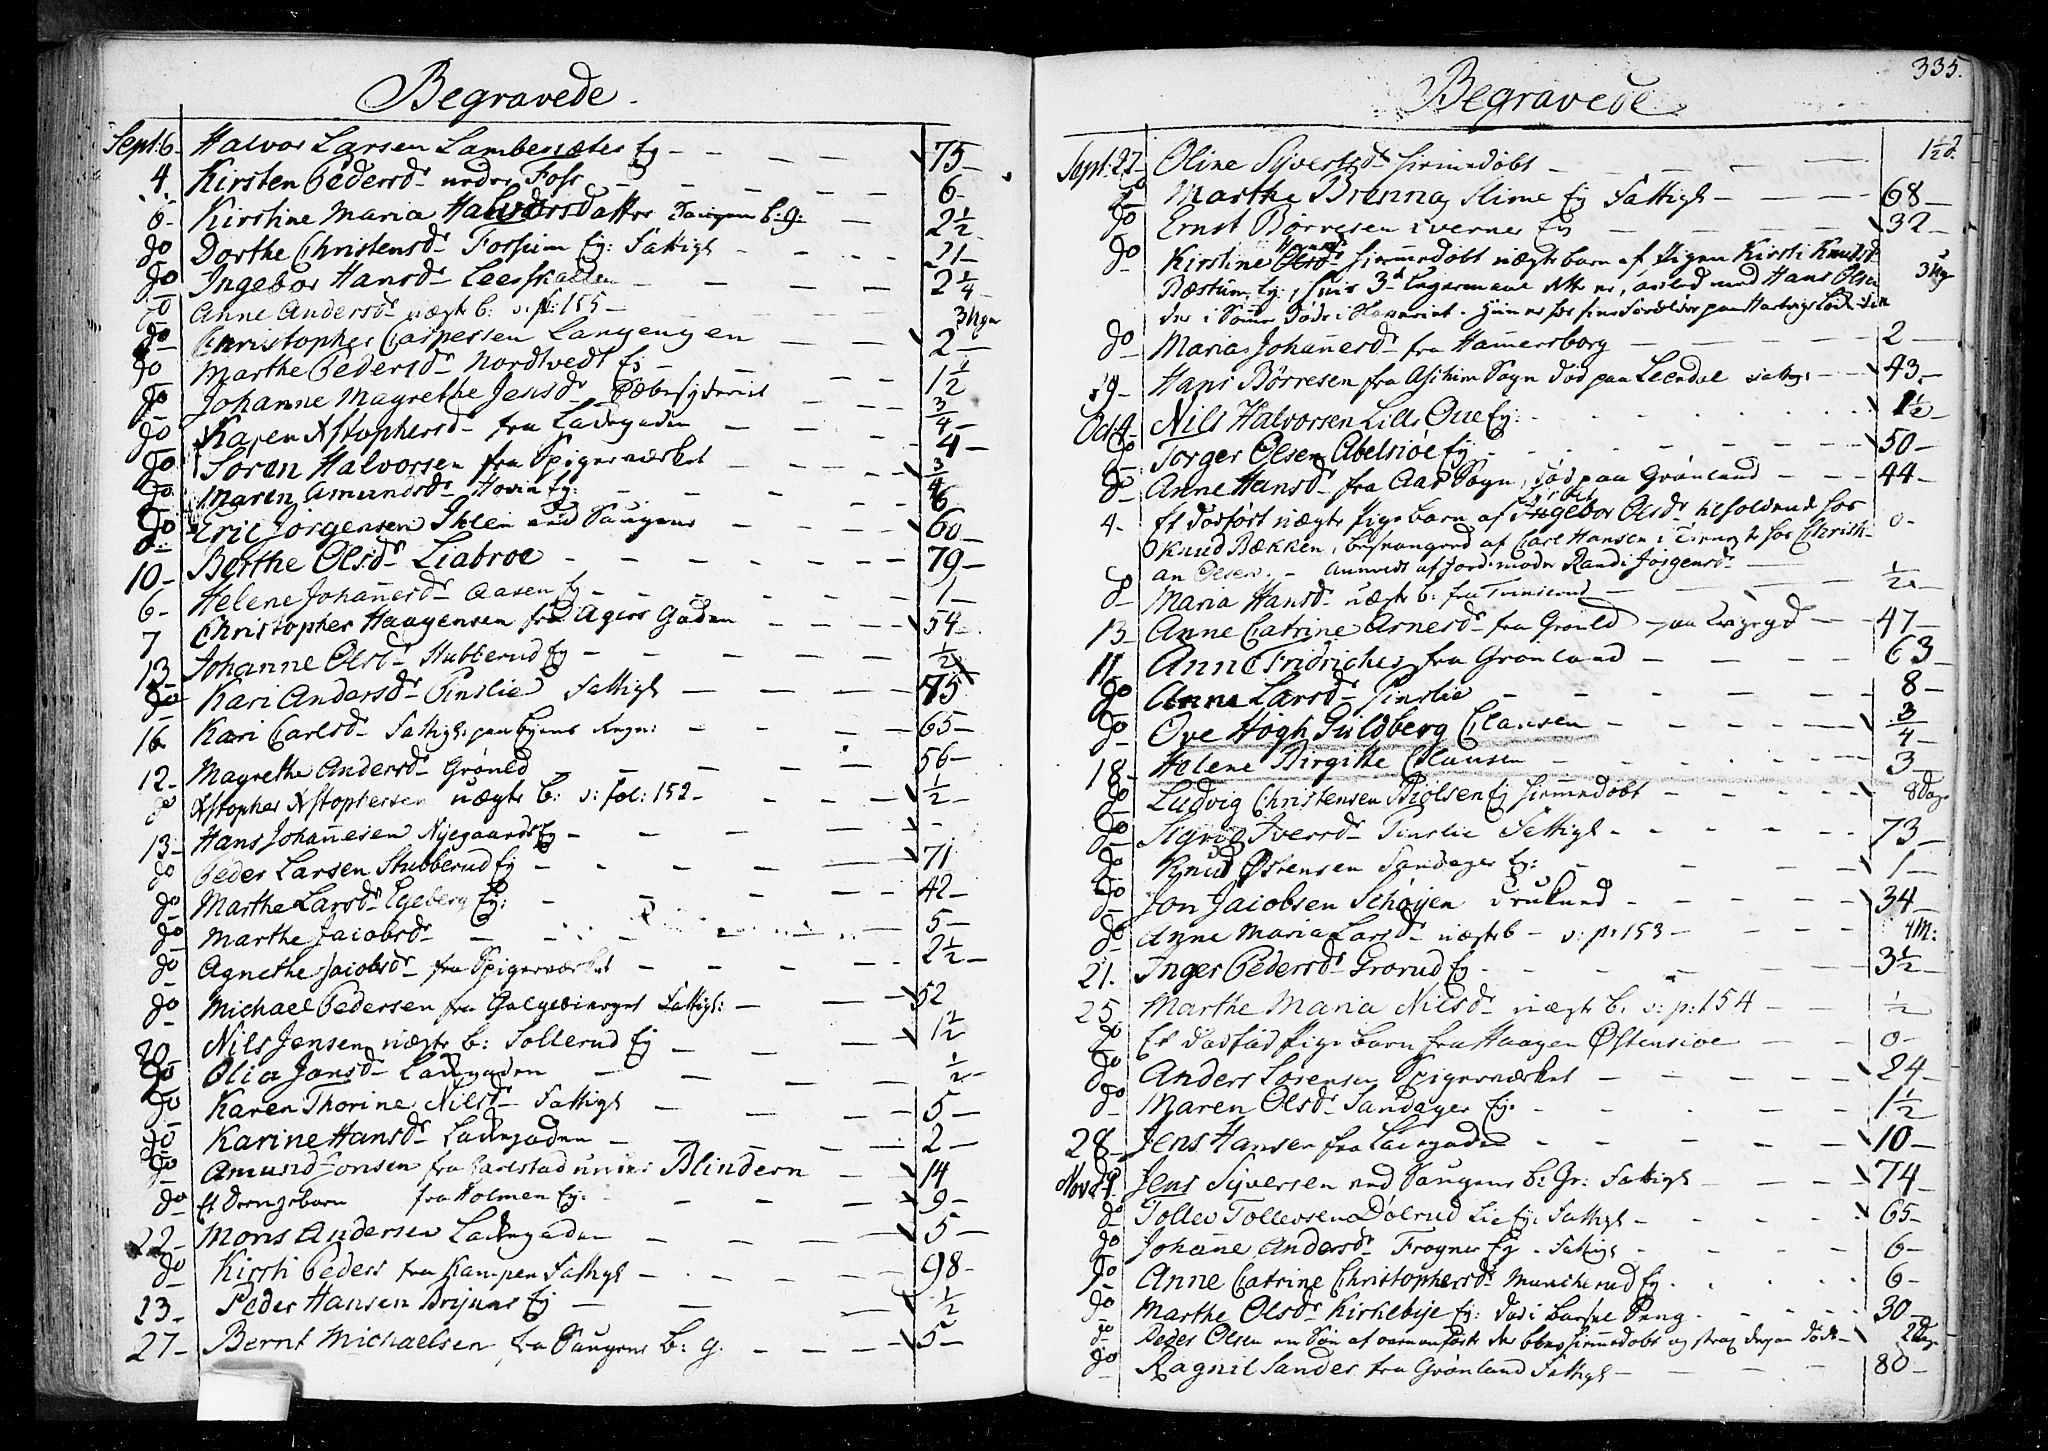 Begravede
Sept: 6 Halvor Larsen Lambersæter Eg 75
4 Kirsten Pedersd. neder Foss 6
6 Kirstine Maria Halvorsdatter Saugene b: g: 2½
do Dorthe Christensd. Fossum Eg: Fattigl 21
do Ingebor Hansd. Leerskallen 2¼
do Anne Andersd. uægte b: v: p: 155 3 Uger
do Christopher Caspersen Langengen 2
do Marthe Pedersd. Nordtvedt Eg
do Johanne Magrethe Jensd. 1½
do Karen Xstophersd. fra Ladegaden ¾
do Søren Halvorsen fra Spigerværket 4
do Maren Amundsd. Hovin Eg: ¾
do Eric Jørgensen Ihlen ved Saugene 60
do Berthe Olsd. Liabroe 79
10 Helene Johannesd. Aasen Eg 1
6
7 Christopher Haagensen fra Agers Gaden 54
13 Johanne Olsd. Stubberud Eg ½
do Kari Andersd. Tinslie Fattigl 75
16 Kari Carlsd. Fattigl. paa Egens 65
12 Magrethe Andersd. Grønld 56
do Xstopher Xstophersen uægte b: v: fol: 152 ½
13 Hans Johannesen Nyegaards Eg
do Peder Larsen Stubberud Eg 71
do Marthe Larsd. Egeberg Eg: 42
do Marthe Jacobsd. 5
do Agnethe Jacobsd. fra Spigerværket 2½
do Michael Pedersen fra Galgebierget Fattigl: 52
20 Nils Jensen uægte b: Sollerud Eg 1½
do Olia Jansd. Ladegaden ½
do Karen Thorine Nilsd. Fattigl 5
do Karine Hansd. Ladegaden 2
do Amund Jonsen fra Carlstad under Blindern 14
do Et Drengebarn fra Holmen Eg: 9
22 Mons Andersen Ladegaden 5
do Kirsti Peders fra Kampen Fattigl 98
23 Peder Hansen Eg ½
27 Bernt Michaelsen fra Saugene b: g. 5
335.
Begravede
Sept: 27 Oline Syvertsd. hiemmedøbt 1½ d.
do Marthe Brenna Slime Eg Fattigl 68
do Ernst Børresen Eg 32
do Kirstine Hansd. hiemmedøbt uægte barn af Pigen Kirsti Knudsd. 3 Ug
Bæstum Eg: 3d Leyermaal dette er, avled med Hans Olsen
do Maria Johannesd. fra Hamersborg 2
29 Hans Børresen fra Sogn død paa Leerdal 43
Oct: 4 Nils Halvorsen Lille Oue Eg: 1½
do Torger Olsen Abelsiøe Eg 50
do Anne Hansd. fra Aas Sogn, død paa Grønland 44
4 Et dødfødt uægte Pigebarn af Ingebor Olsd. hos 0
Knud Bækken, besvangred af Carl Hansen i Tieneste hos Christi-
an Olsen. Anmeldt af Jordemoder Randi Jørgensd.
do Maria Hansd. uægte b: fra ½
13 Anne Catrine Arnesd. fra Grønld 47
11 Anne Fridriches fra Grønland 63
do Anne Larsd. Tinslie 8
do Ove Høgh Guldberg Clausen ¾
18 Helene Birgitte Clausen 3
do Ludvig Christensen Biølsen Eg hiemmedøbt 8 Dage
do Sigrid Iversd. Tinslie Fattigl 73
do Knud Østensen Sandager Eg: 1
do Jon Jacobsen Schøyen druknd 34
do Anne Maria Larsd. uægte b v: p: 153 4 M:
21. Inger Pedersd. Grorud Eg 3½
25 Marthe Maria Nilsd. uægte b. v: p: 154 ½
do Et dødfød Pigebarn fra Haagen Østensiøe 0
do Anders Sørensen Spigerværket 24
do Maren Olsd. Sandager Eg: 1½
28 Jens Hansen fra Ladegaden 10
Nov: 1 Jens Syversen ved Saugene b: Gr: Fattigl 74
do Tollev Tollevsen Dølerud Lie Eg: Fattigl 65
do Johanne Andersd. Frogner Eg. Fattigl 6
do Anne Catrine Christophersd. Muncherud Eg. 6
do Marthe Olsd. Kirkebye Eg: død i Barsel Seng. 30
do Peder Olsen en Søn af ovenanførte der blev hiemmedøbt og strax derpaa døde 2 Dage
do Ragnil Sander fra Grønland Fattigl 80